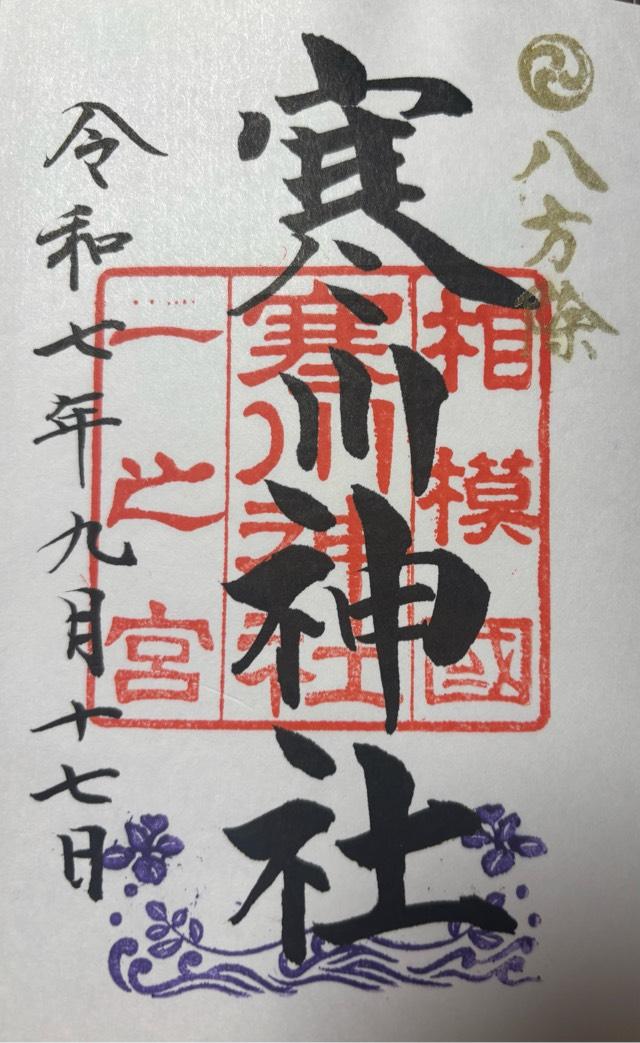 八方除
寒川神社
相模國
寒川神社
一之宮
令和七年九月十七日